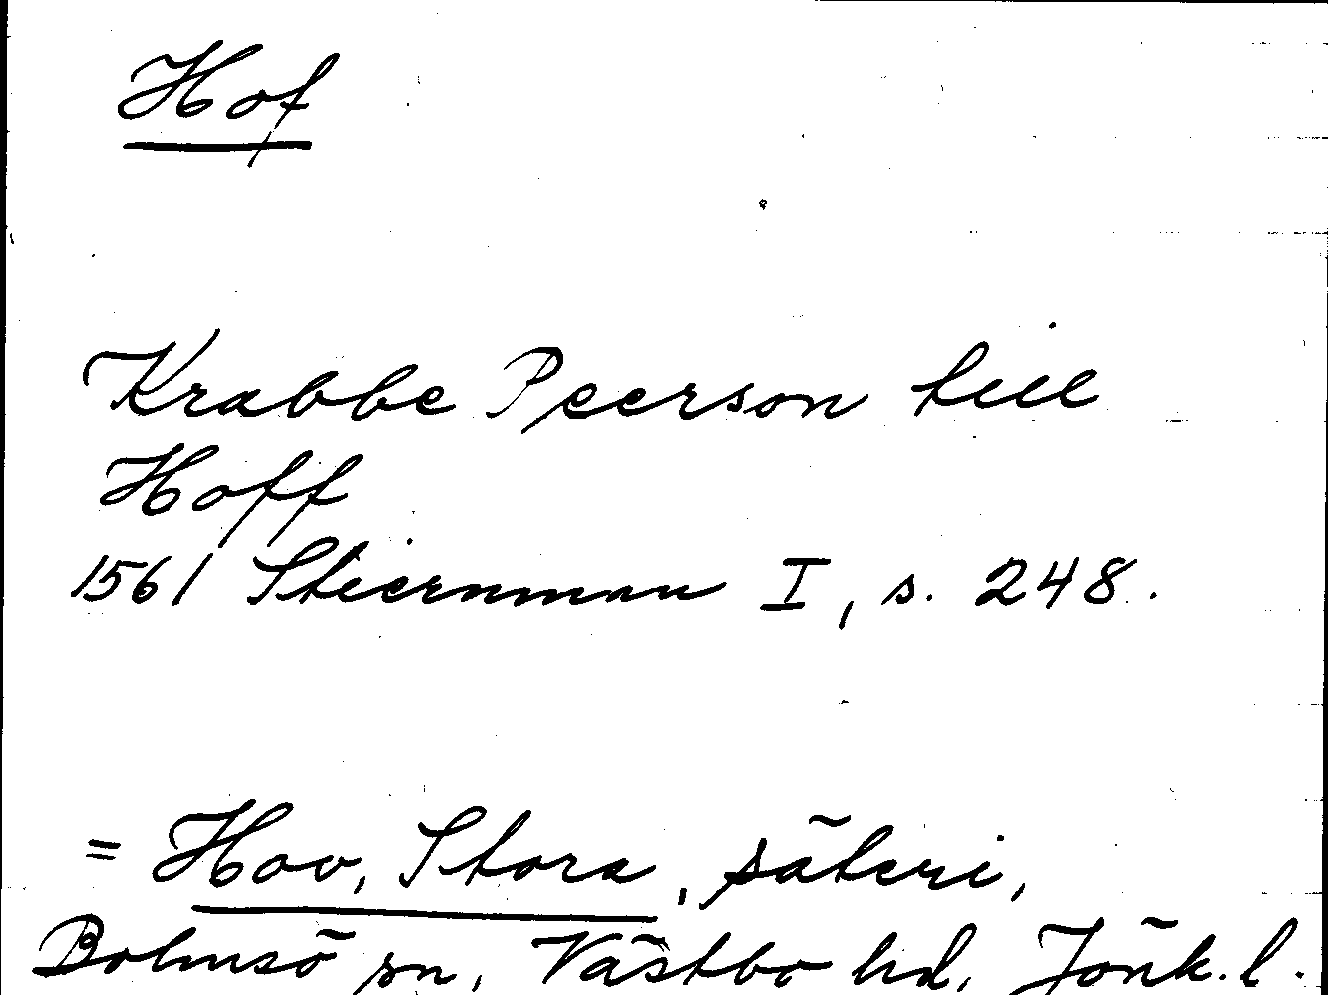 Hof
Krabbe Peerson till
Hoff
1561 Stiernman I, s. 248.
= Hov, Stora, säteri,
Bolmsö sn, Västbo hd, Jönk. l.